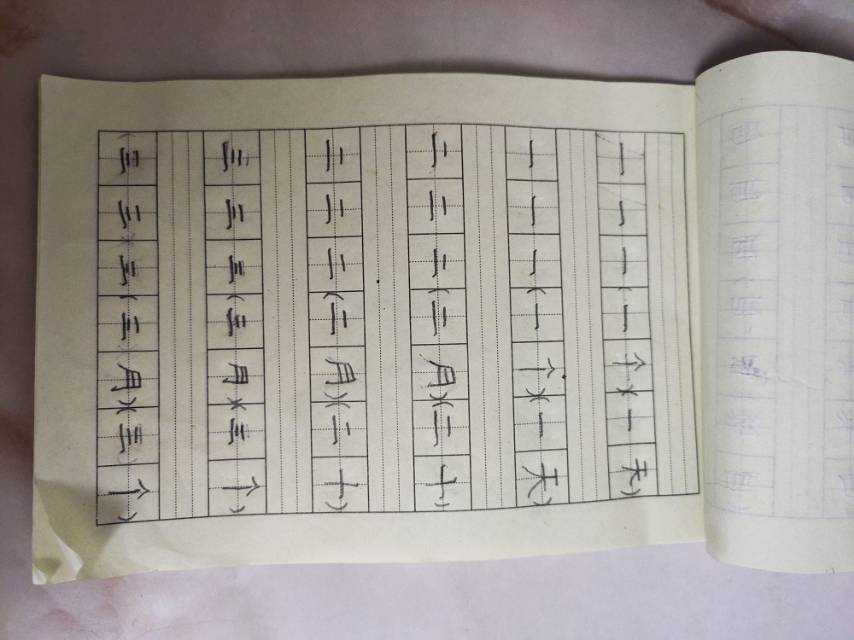 一一一(一个)(一天)
一一一(一个)(一天)
二二二(二月)(二十)
二二二(二月)(二十)
三三三(三月)(三个)
三三三(三月)(三个)